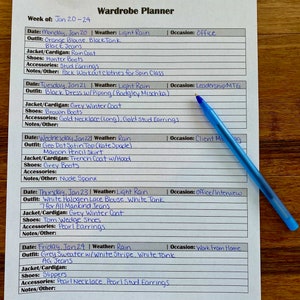 Wardrobe Planner
Week of: Jan 20-24
Date: Monday, Jan 20 Weather: Light Rain Occasion: Office
Outfit: Orange Blouse, Black Tank
Black Jeans
Jacket/Cardigan: Rain Coat
Shoes: Hunter Boots
Accessories: Stud Earrings
Notes/Other: Pack Workout Clothes for Spin Class
Date: Tuesday, Jan 21 Weather: Light Rain Occasion: Leadership MTG
Outfit: Black Dress w/Piping (Badgley Mischka)
Jacket/Cardigan: Grey Winter Coat
Shoes: Brown Boots
Accessories: Gold Necklace (long), Gold Stud Earrings
Notes/Other:
Date: Wednesday, Jan 22 Weather: Rain Occasion: Client
Outfit: Top (Kate Spade)
Maroon Pencil Skirt
Jacket/Cardigan: Trench Coat w/Hood
Shoes: Grey Boots
Accessories:
Notes/Other: Nude Spanx
Date: Thursday, Jan 23 Weather: Light Rain Occasion: Office/Interview
Outfit: White Halogen Lace Blouse, White Tank
7 For All Mankind Jeans
Jacket/Cardigan: Grey Winter Coat
Shoes: Toms Wedge Shoes
Accessories: Pearl Earrings
Notes/Other:
Date: Friday, Jan 24 Weather: Rain Occasion: Work from Home
Outfit: Grey Sweater w/White Stripe, White Tank
AG Jeans
Jacket/Cardigan:
Shoes: Slippers
Accessories: Pearl Necklace, Pearl Stud Earrings
Notes/Other: